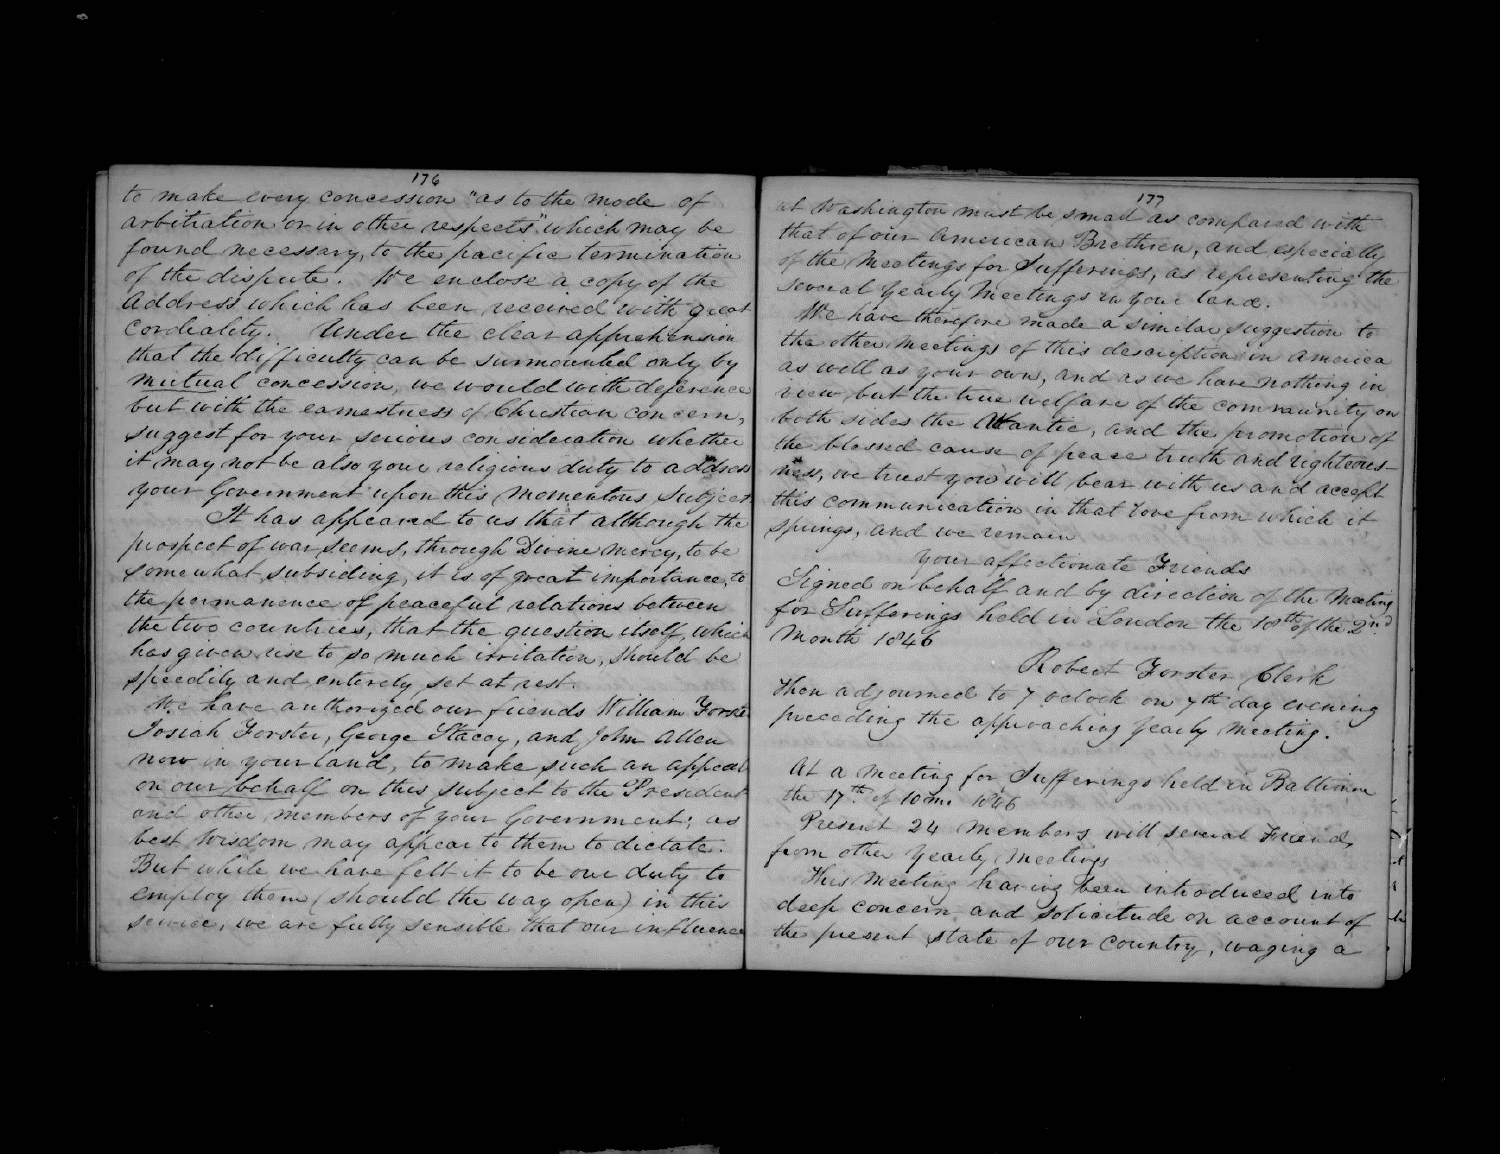 176
to make every concession "as to the mode of
arbitration or in other respects" which may be
found necessary, to the pacific termination
of the dispute. We enclose a copy of the
Address which has been received with great
cordiality. Under the clear apprehension
that the difficulty can be surmounted only by
mutual concession, we would with deference
but with the earnestness of Christian concern,
suggest for your serious consideration whether
it may not be also your religious duty to address
your Government upon this momentous subject.
It has appeared to us that although the
prospect of war seems, through Divine mercy, to be
somewhat subsiding, it is of great importance, to
the permanence of peaceful relations between
the two countries, that the question itself, which
has given rise to so much irritation, should be
speedily and entirely set at rest.
We have authorized our friends William Forster
Josiah Forster, George Stacey, and John Allen
now in your land, to make such an appeal
on our behalf on this subject to the President
and other members of your Government; as
best wisdom may appear to them to dictate.
But while we have felt it to be our duty to
employ them (should the way open) in this
service, we are fully sensible that our influence
177
at Washington must be small as compared with
that of our American Brethren, and especially
of the Meetings for Sufferings, as representing the
several Yearly Meetings in your land.
We have therefore made a similar suggestion to
the other meetings of this description in America
as well as your own, and as we have nothing in
view but the true welfare of the community on
both sides the Atlantic, and the promotion of
the blessed cause of peace truth and righteous-
ness, we trust you will bear with us and accept
this communication in that love from which it
springs, and we remain
your affectionate Friends
Signed on behalf and by direction of the Meeting
for Sufferings held in London the 10th of the 2nd
Month 1846
Robert Forster Clerk
Then adjourned to 7 oclock on 7th day evening
preceding the approaching Yearly Meeting.
At a Meeting for Sufferings held in Baltimore
the 17th of 10 mo. 1846
Present 24 members with several Friends
from other Yearly Meetings
This Meeting having been introduced into
deep concern and solicitude on account of
the present state of our country, waging a